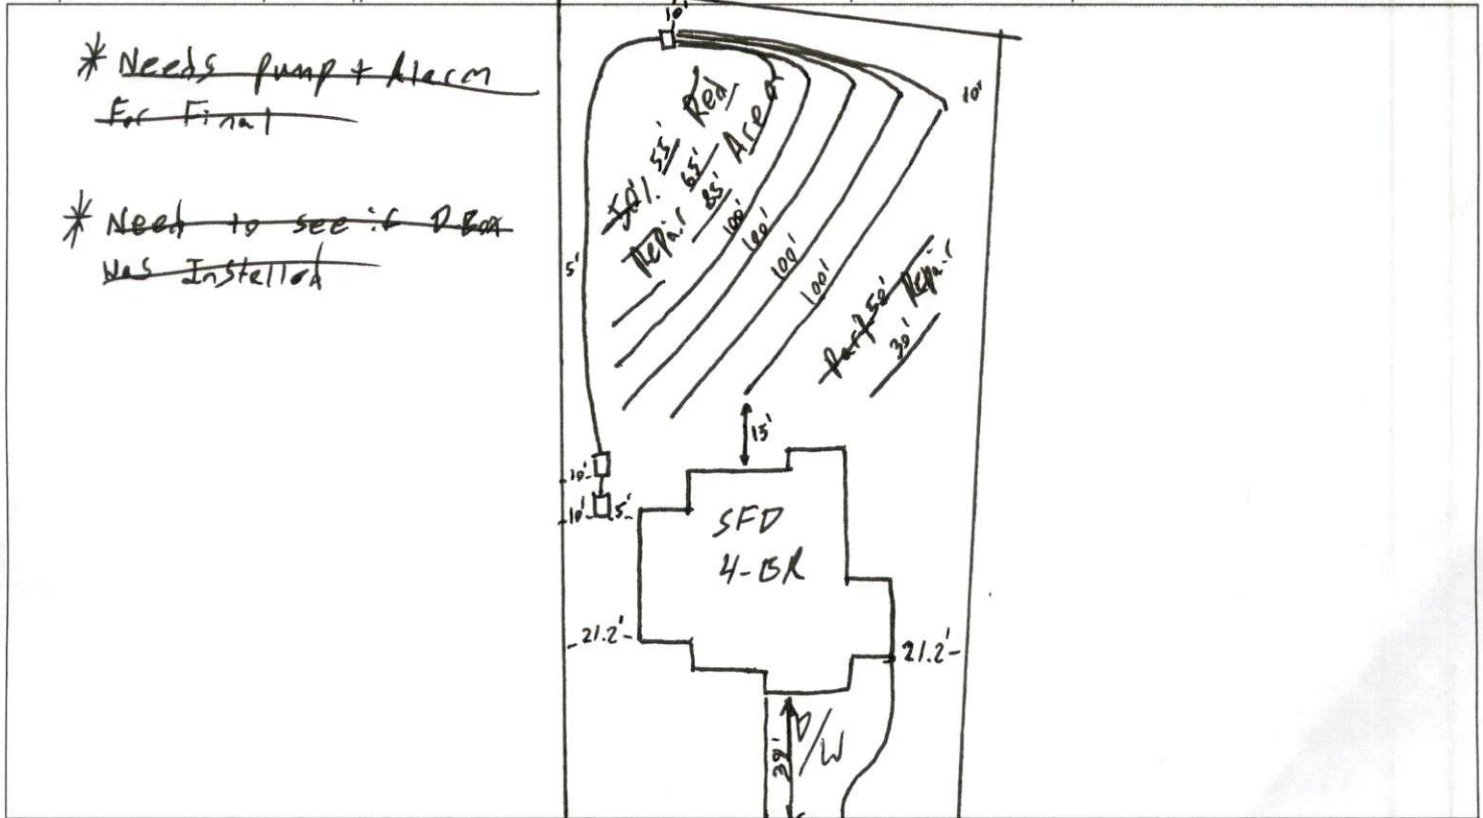 * Needs pump + Alarm
For Final
* Need to see if D-Box
Was Installed
10'
10'
50%. 55' Red
Repair 65' Area
85'
100'
100'
100'
100'
5'
50' Repair
30'
15'
10'
10' 5'
SFD
4-BR
21.2'
21.2'
D/W